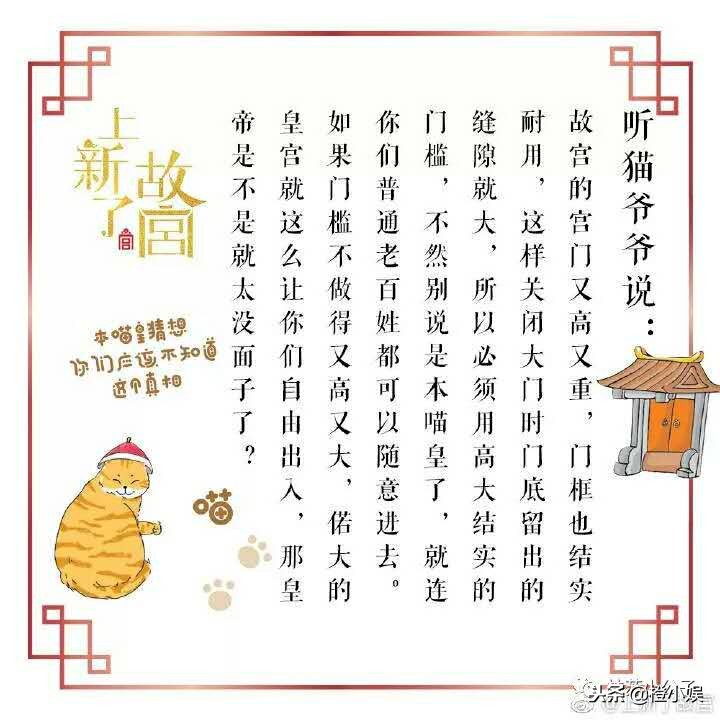 听猫爷爷说：
故宫的宫门又高又重，门框也结实
耐用，这样关闭大门时门底留出的
缝隙就大，所以必须用高大结实的
门槛，不然别说是本喵皇了，就连
你们普通老百姓都可以随意进去。
如果门槛不做得又高又大，偌大的
皇宫就这么让你们自由出入，那皇
帝是不是就太没面子了？
上新了
故宫
宫
本喵皇猜想
你们应该不知道
这个真相
喵
头条@橙小娱